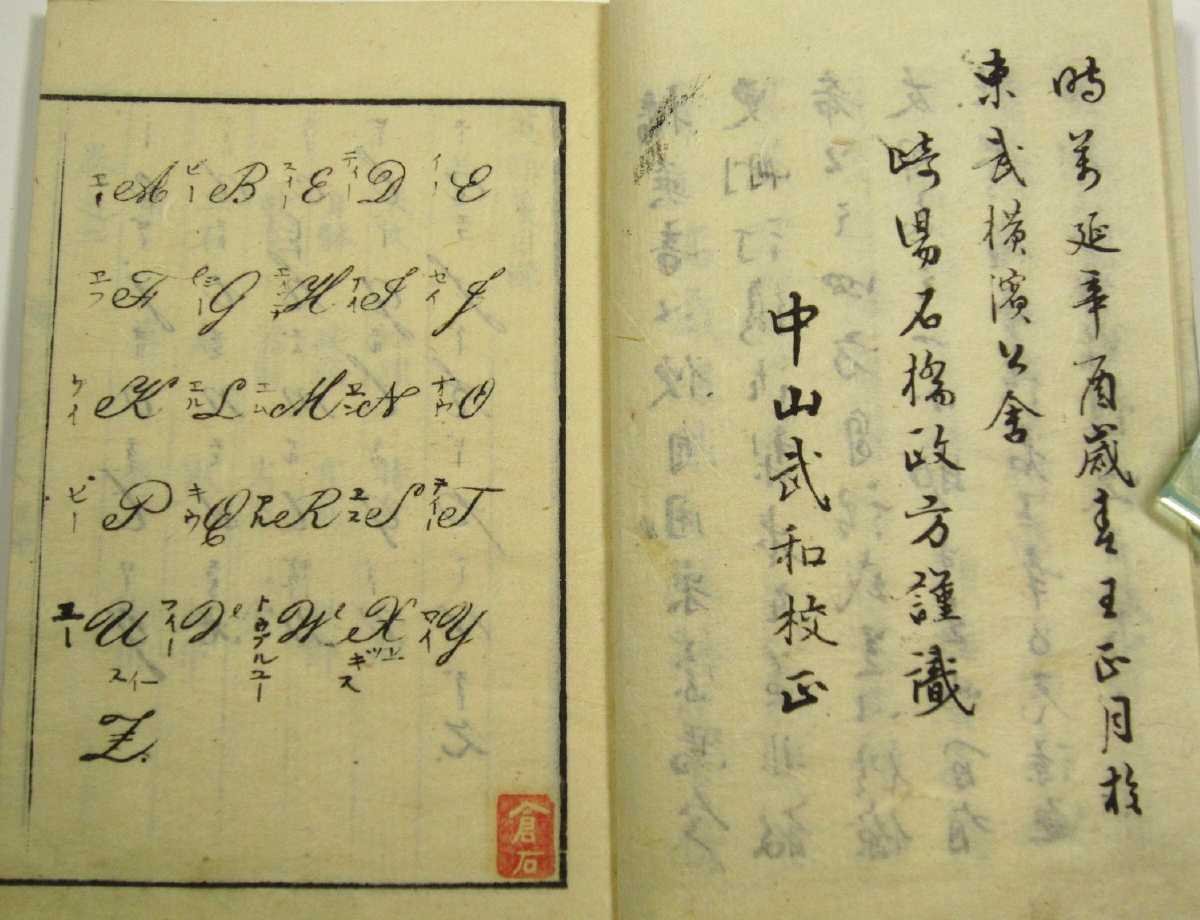 時萬延辛酉歳春王正月於
東武横濱公舎
崎陽石橋政方謹識
中山武和校正
エー A ビー B スイー C ティー D イー E
エフ F ヂー G エイチ H アイ I ゼイ J
ケイ K エル L エム M エン N オウ O
ピー P キウ Q アル R エス S ティー T
ユー U フィー V トブルユー W X エッキス ワイ Y
スイー
Z.
倉石